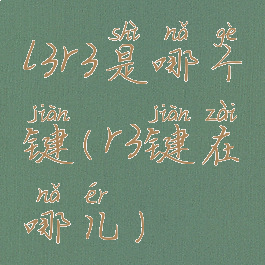 shì nǎ gè
l3r3是哪个
jiàn jiàn zài
键(r3键在
nǎ ér
哪儿)